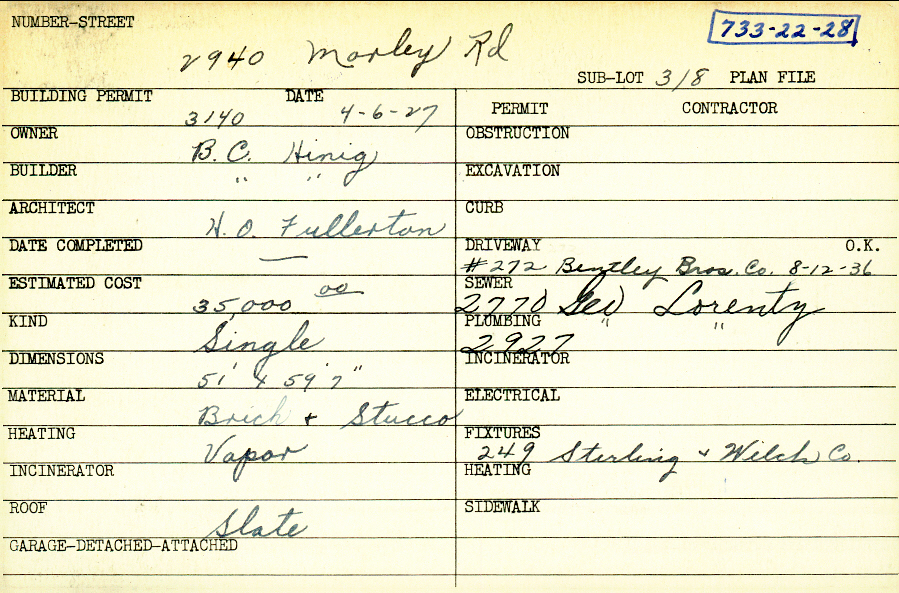 NUMBER-STREET 2940 Morley Rd 733-22-28
SUB-LOT 318 PLAN FILE
BUILDING PERMIT 3140 DATE 4-6-27
PERMIT CONTRACTOR
OWNER B. C. Hinig
OBSTRUCTION
BUILDER " "
EXCAVATION
ARCHITECT H. O. Fullerton
CURB
DATE COMPLETED —
DRIVEWAY #272 Bentley Bros. Co. 8-12-36 O.K.
ESTIMATED COST 35,000 00
SEWER 2770 Geo Lorenty
KIND Single
PLUMBING 2927 " "
DIMENSIONS 51' x 59' 7"
INCINERATOR
MATERIAL Brick + Stucco
ELECTRICAL
HEATING Vapor
FIXTURES 249 Sterling + Welch Co.
INCINERATOR
HEATING
ROOF Slate
SIDEWALK
GARAGE-DETACHED-ATTACHED